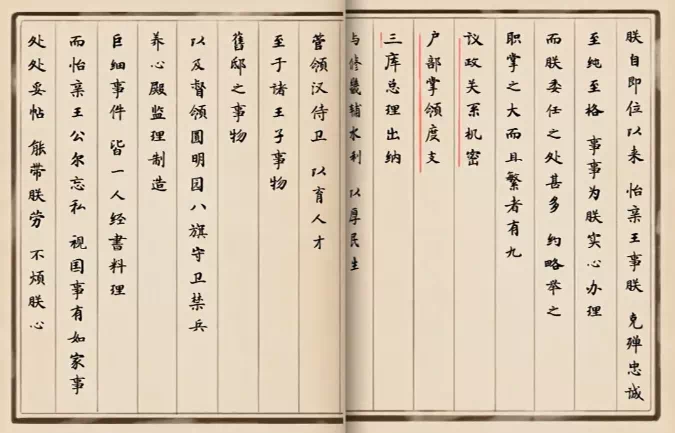 朕自即位以来 怡亲王事朕 克殚忠诚
至纯至格 事事为朕实心办理
而朕委任之处甚多 约略举之
职掌之大而且繁者有九
议政关系机密
户部掌領度支
三库总理出纳
与修畿辅水利 以厚民生
管领汉侍卫 以育人才
至于诸王子事物
舊邸之事物
以及督领圆明园八旗守卫禁兵
养心殿监理制造
巨细事件 皆一人经書料理
而怡亲王公尔忘私 视国事有如家事
处处妥帖 能带朕劳 不烦朕心